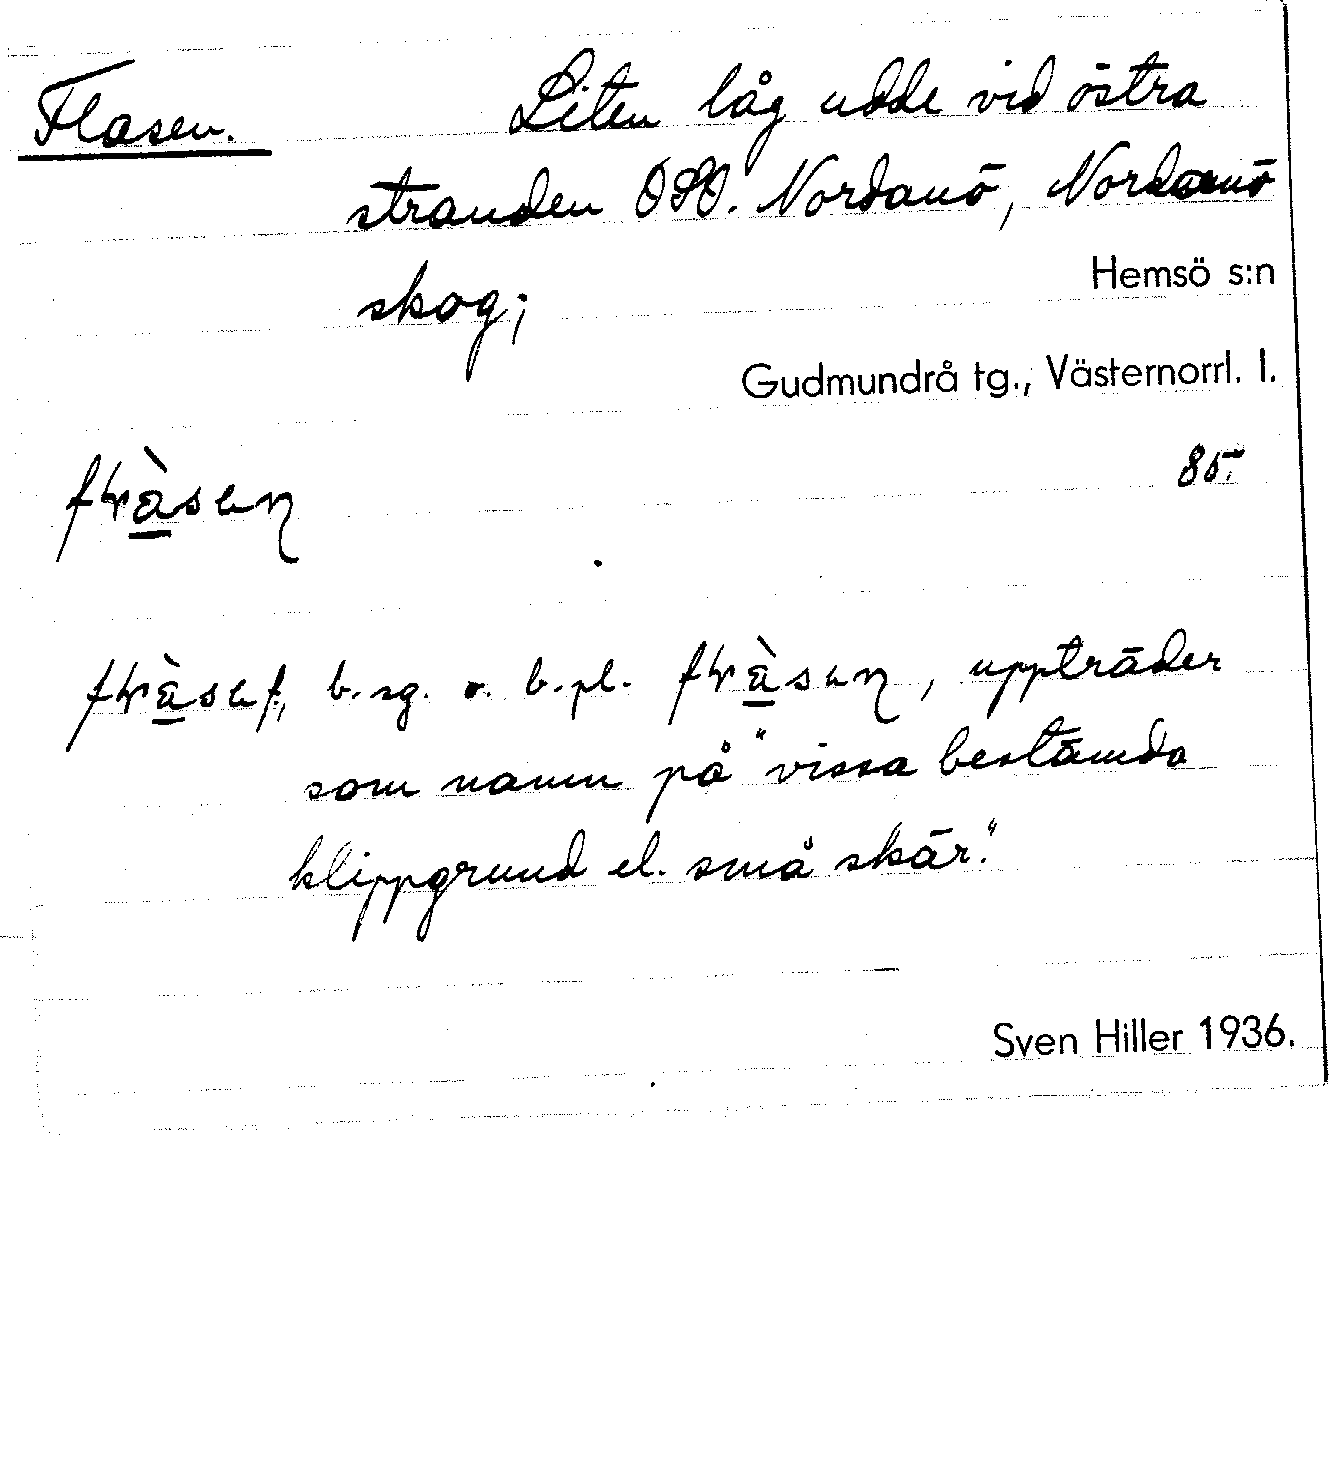 Flasen. Liten låg udde vid östra
stranden OSO. Nordanö, Nordanö
skog;
Hemsö s:n
Gudmundrå tg., Västernorrl. l.
85.
b. sg. o. b. pl. , uppträder
som namn på "vissa bestämda
klippgrund el. små skär."
Sven Hiller 1936.